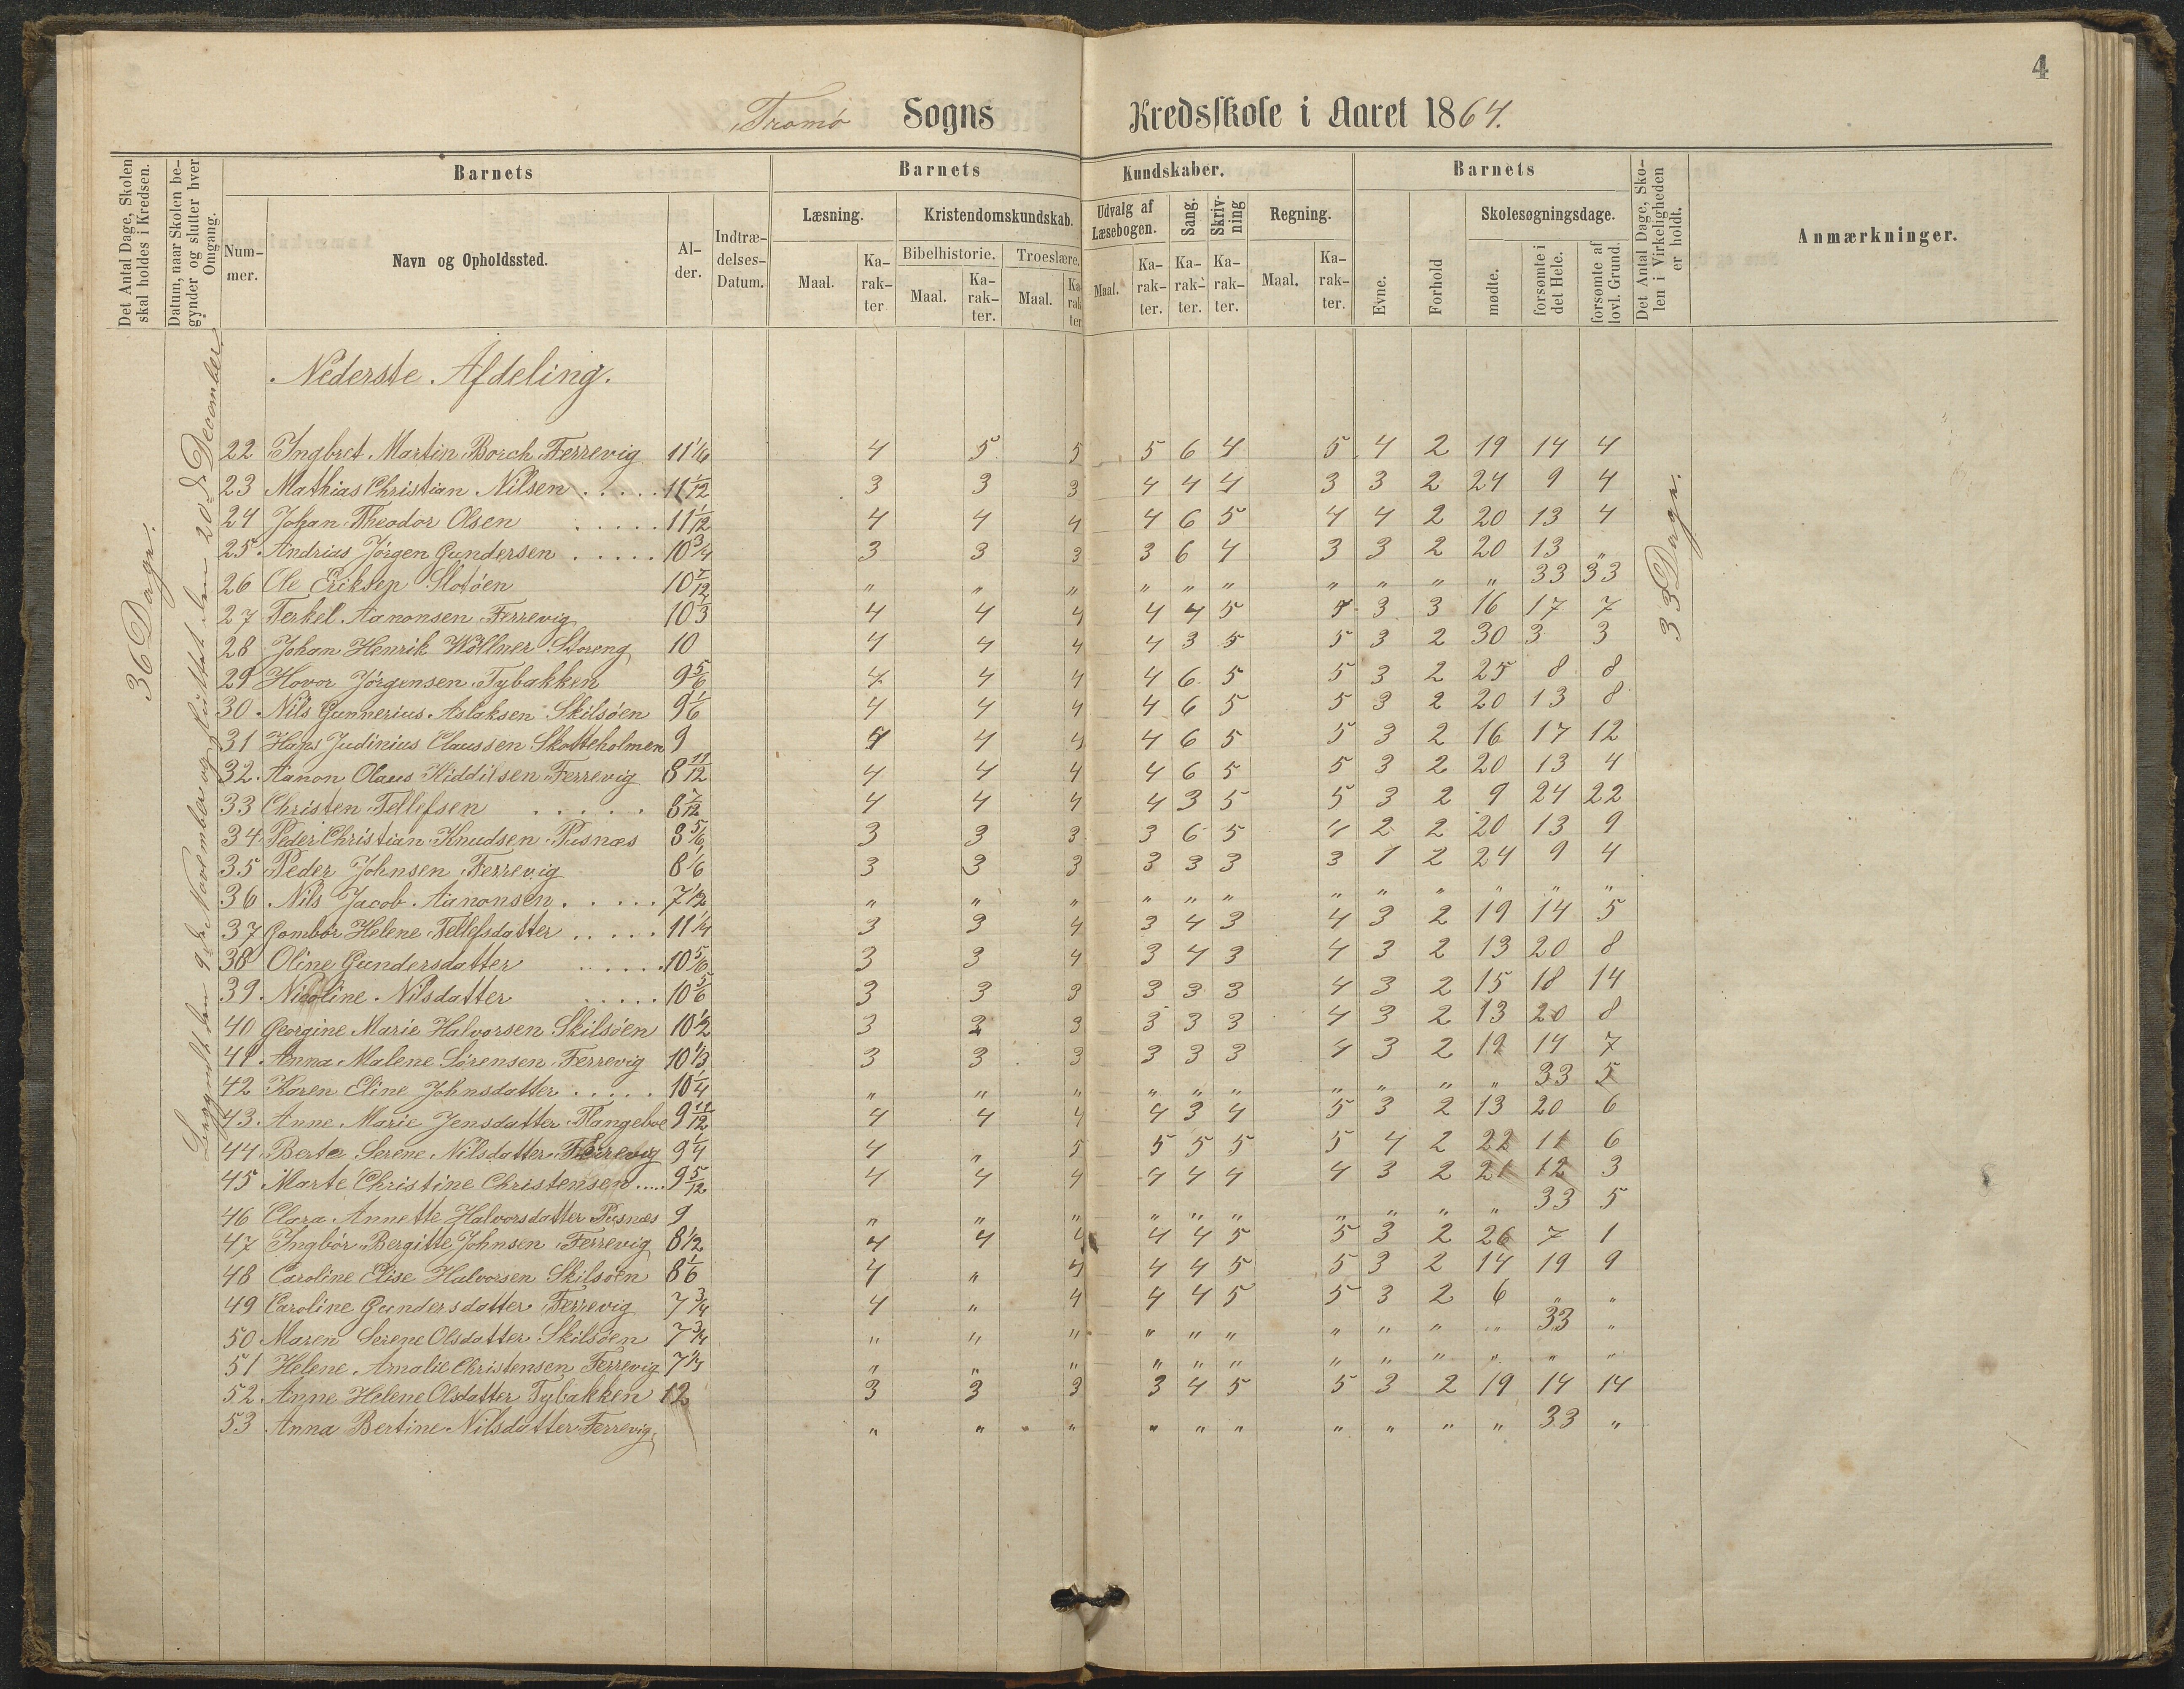 4
Tromø Sogns Kredsskole i Aaret 1864.
Det Antal Dage, Skolen skal holdes i Kredsen.
Datum, naar Skolen begynder og slutter hver Omgang.
Barnets
Barnets Kundskaber.
Barnets
Det Antal Dage, Skolen i Virkeligheden er holdt.
Anmærkninger.
Nummer.
Navn og Opholdssted.
Alder.
Indtrædelses-Datum.
Læsning.
Kristendomskundskab.
Udvalg af Læsebogen.
Sang.
Skrivning
Regning.
Evne.
Forhold
Skolesøgningsdage.
Bibelhistorie.
Troeslære.
Maal.
Karakter
Maal.
Karakter.
Maal.
Karakter
Maal.
Karakter.
Karakter.
Karakter.
Maal.
Karakter.
mødte.
forsømte i det Hele.
forsømte af lovl. Grund.
36 Dage.
Begyndt den 9de November og sluttet den 20de December.
33 Dage.
Nederste Afdeling.
22 Ingbret Martin Borch Færrevig 11 1/6 4 5 5 5 6 4 5 4 2 19 14 4
23 Mathias Christian Nilsen . . . . . 11 1/12 3 3 3 4 4 4 3 3 2 24 9 4
24 Johan Theodor Olsen . . . . . 11 1/12 4 4 4 4 6 5 4 4 2 20 13 4
25 Andrias Jørgen Gundersen . . . . . 10 3/4 3 3 3 3 6 4 3 3 2 20 13 "
26 Ole Eriksen 10 7/12 " " " " " " " " " " 33 33
27 Terkel Aanonsen Færrevig 10 3 4 4 4 4 4 5 3 3 16 17 7
28 Johan Henrik Wöllner Storeng 10 4 4 4 4 3 5 5 3 2 30 3 3
29 Hovor Jörgensen Tybakken 9 5/6 4 4 4 4 6 5 5 3 2 25 8 8
30 Nils Gunnerius Aslaksen Skilsöen 9 1/6 4 4 4 4 6 5 5 3 2 20 13 8
31 Hans Judinius Claussen Skotteholmen 9 4 4 4 4 6 5 5 3 2 16 17 12
32 Aanon Olaus Kiddilsen Færrevig 8 11/12 4 4 4 4 6 5 5 3 2 20 13 4
33 Christen Tellefsen . . . . . 8 7/12 4 4 4 4 3 5 5 3 2 9 24 22
34 Peder Christian Knudsen Pusnæs 8 5/6 3 3 3 3 6 5 4 2 2 20 13 9
35 Peder Johnsen Færrevig 8 1/6 3 3 3 3 3 3 3 1 2 24 9 4
36 Nils Jacob Aanonsen . . . . . 7 1/2 " " " " " " " " " " " "
37 Gombør Helene Tellefsdatter . . . . . 11 1/4 3 3 4 3 4 3 4 3 2 19 14 5
38 Oline Gundersdatter . . . . . 10 5/6 3 3 4 3 4 3 4 3 2 13 20 8
39 Nicoline Nilsdatter . . . . . 10 5/6 3 3 3 3 3 3 4 3 2 15 18 14
40 Georgine Marie Halvorsen Skilsöen 10 1/2 3 2 3 3 3 3 4 3 2 13 20 8
41 Anna Malene Sørensen Færrevig 10 1/3 3 3 3 3 3 3 4 3 2 19 14 7
42 Karen Eline Johnsdatter . . . . . 10 1/4 " " " " " " " " " " 33 5
43 Anne Marie Jensdatter 9 11/12 4 4 4 4 3 4 5 3 2 13 20 6
44 Berte Serene Nilsdatter Færrevig 9 1/4 4 " 5 5 5 5 5 4 2 22 11 6
45 Marte Christine Christensen . . . . . 9 5/12 4 4 4 4 4 4 4 3 2 21 12 3
46 Clara Annette Halvorsdatter Pusnæs 9 " " " " " " " " " " 33 5
47 Ingbör Bergitte Johnsen Færrevig 8 1/2 4 4 4 4 4 5 5 3 2 26 7 1
48 Caroline Elise Halvorsen Skilsöen 8 1/6 4 " 4 4 4 5 5 3 2 14 19 9
49 Caroline Gundersdatter Færrevig 7 3/4 4 " 4 4 4 5 5 3 2 6 " "
50 Maren Serene Olsdatter Skilsöen 7 3/4 " " " " " " " " " " 33 "
51 Helene Amalie Christensen Færrevig 7 1/3 " " " " " " " " " " " "
52 Anne Helene Olsdatter Tybakken 12 3 3 3 3 4 5 5 3 2 19 14 14
53 Anna Bertine Nilsdatter Færrevig " " " " " " " " " " 33 "